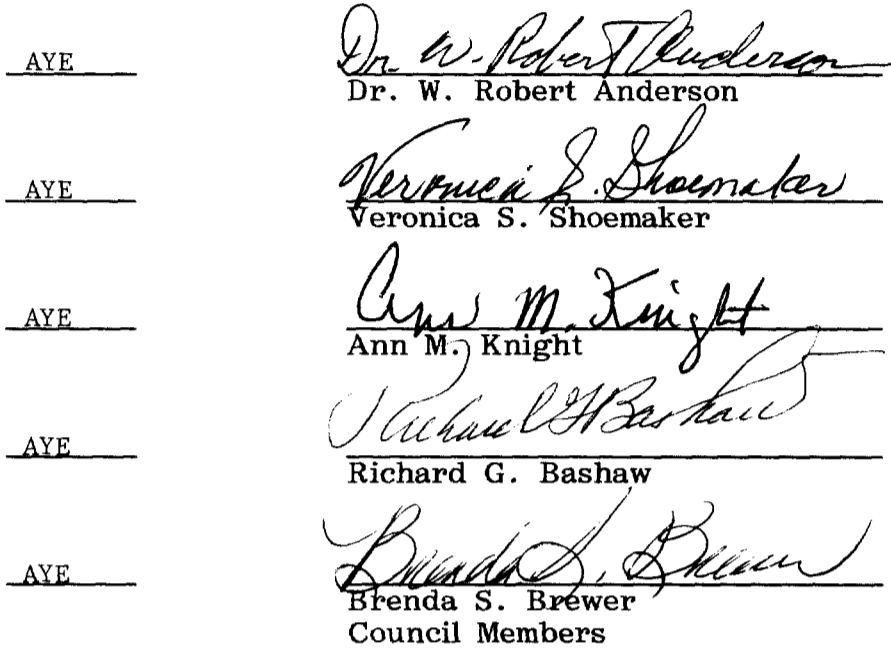 AYE Dr. W. Robert Anderson
Dr. W. Robert Anderson
AYE Veronica S. Shoemaker
Veronica S. Shoemaker
AYE Ann M. Knight
Ann M. Knight
AYE Richard G Bashaw
Richard G. Bashaw
AYE Brenda S. Brewer
Brenda S. Brewer
Council Members